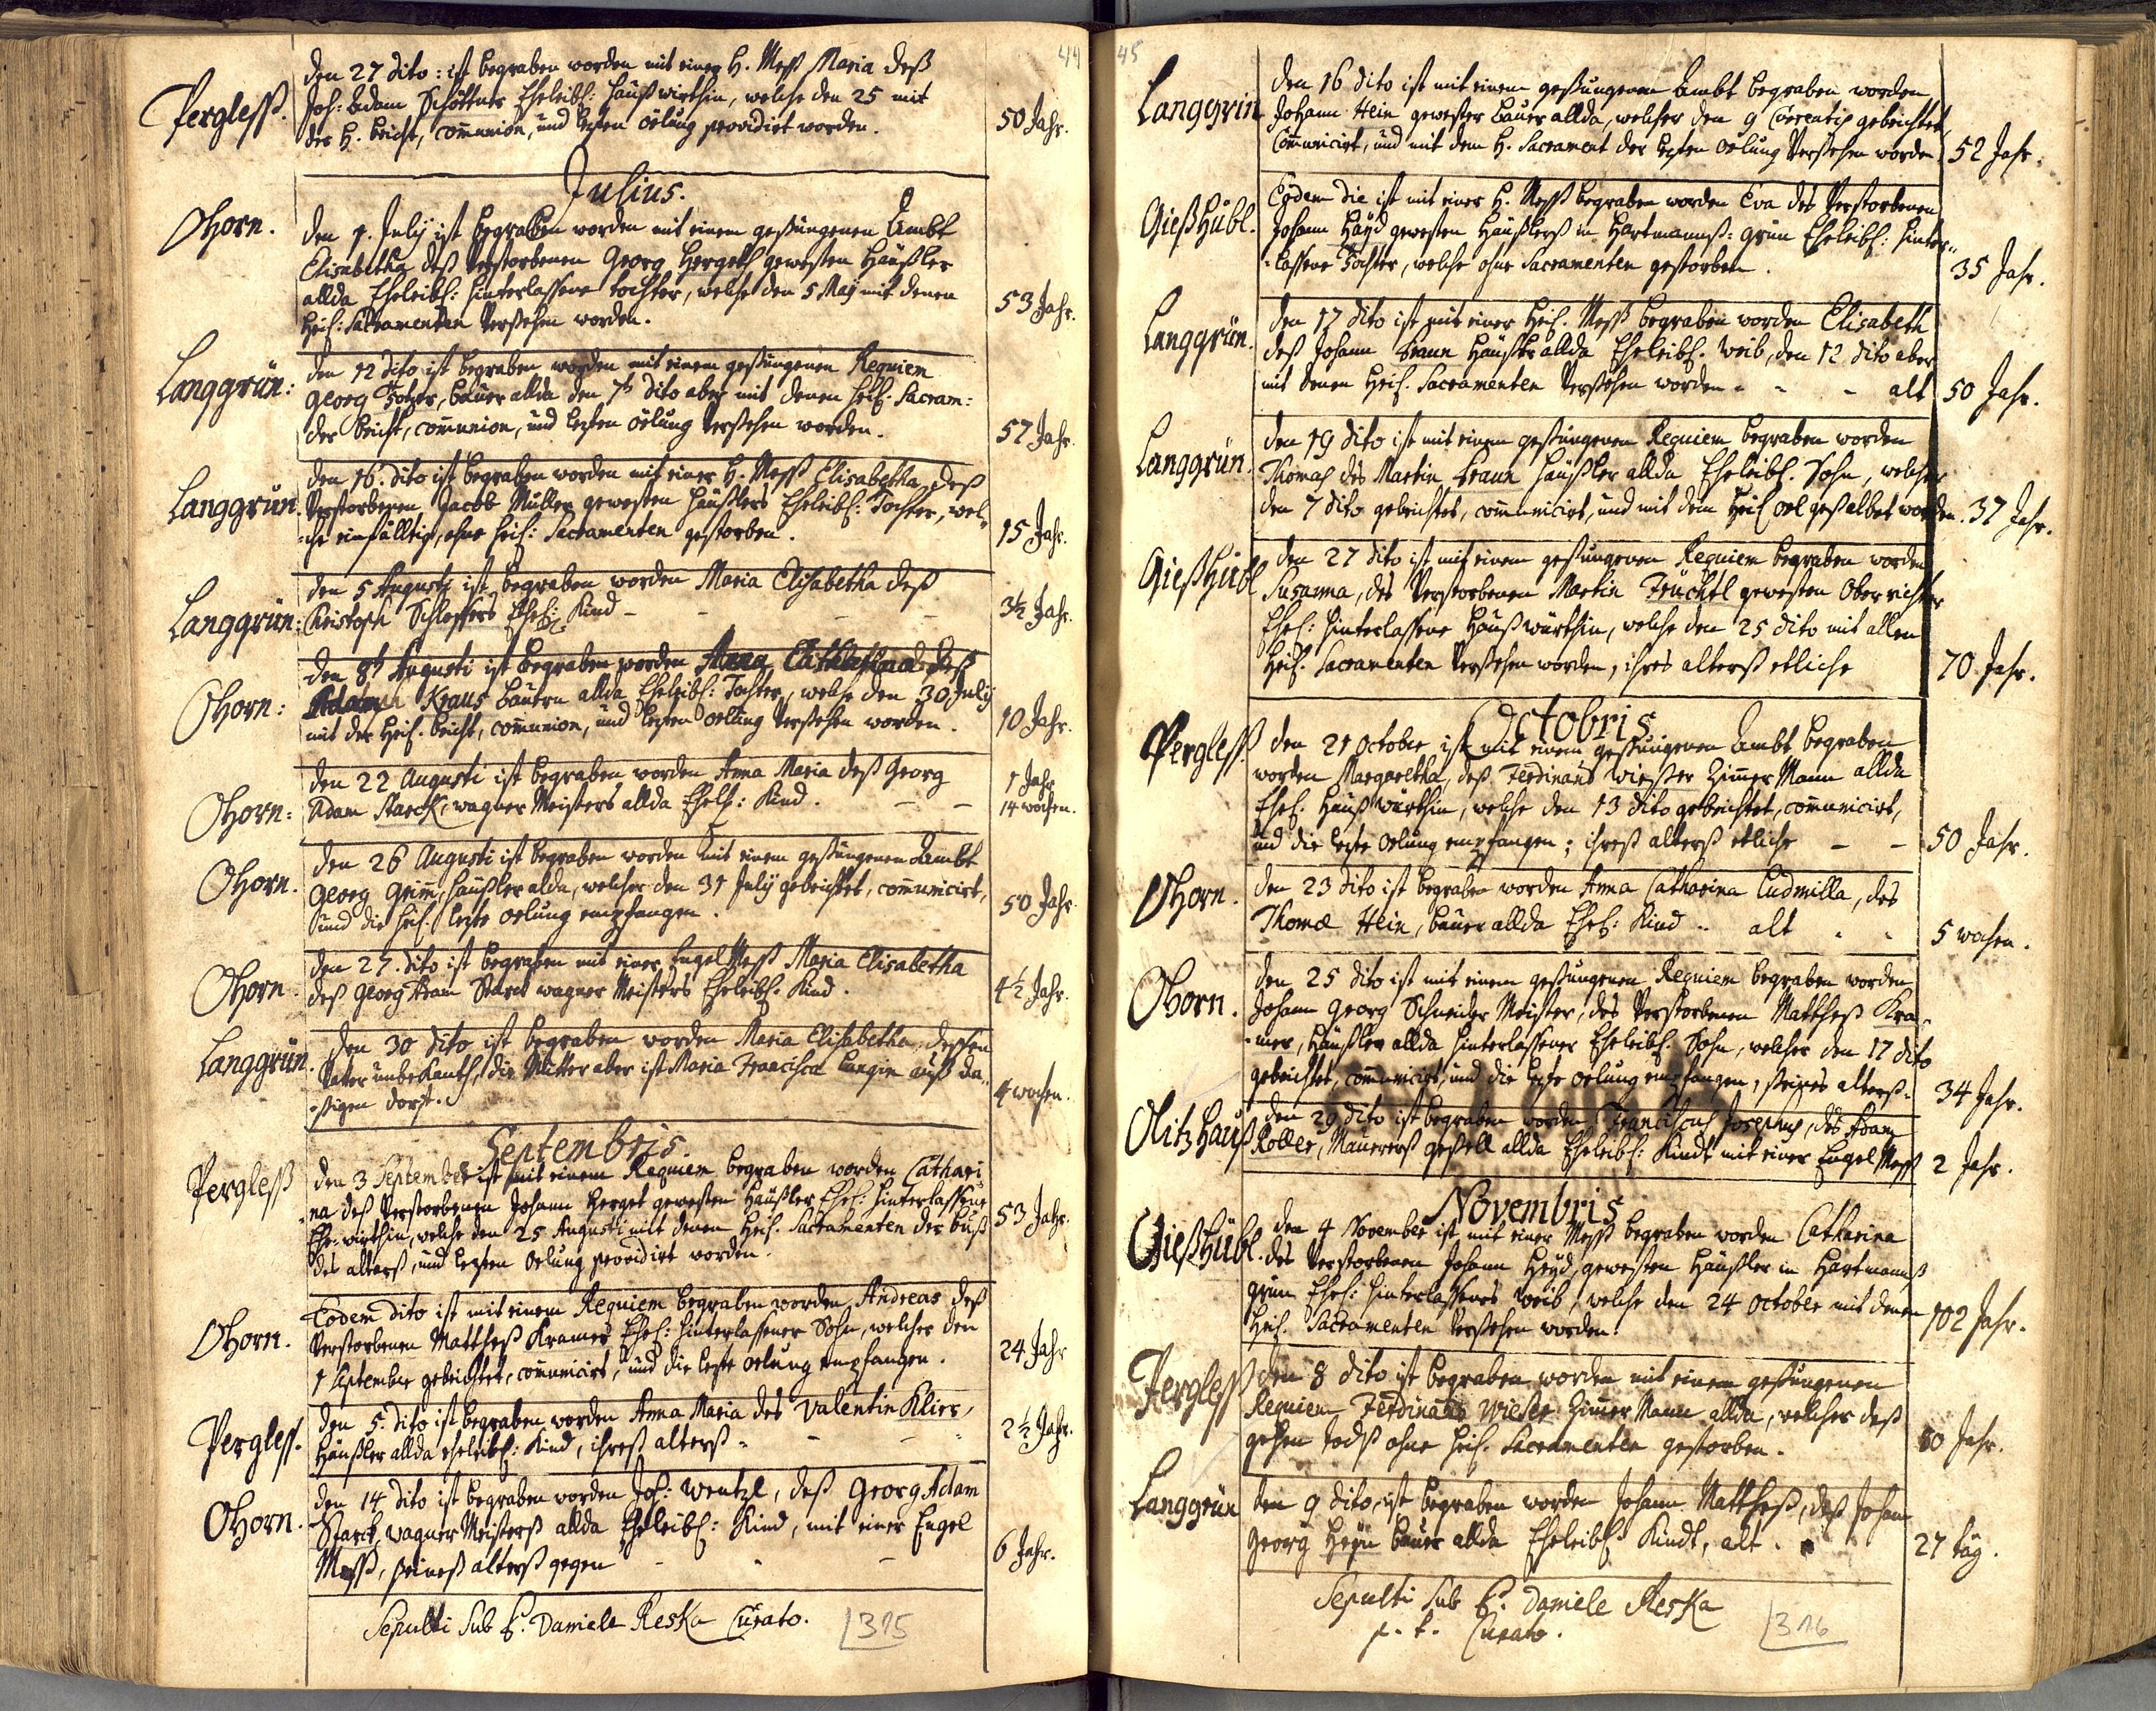 44
Pergless.
den 27 dito: ist begraben worden mit einer H. Mess Maria deß
Joh: Adam Schöttners Eheleibl: Haußwirthin, welche den 25 mit
der H. beicht, com̄union, und lezten oelung providirt worden.
50 Jahr.
Julius.
Ohorn.
den 9. July ist begraben worden mit einem gesungenen Ambt
Elisabetha deß Verstorbenen Georg Hergeth gewesten Häußler
allda Eheleibl: hinterlassene tochter, welche den 5 Maij mit denen
Heil: Sacramenten Versehen worden.
53 Jahr.
Langgrün:
den 12 dito ist begraben worden mit einem gesungenen Requiem
Georg, bauer allda den 7t dito aber mit denen Heil. Sacram:
der beicht, communion, und lezten oelung Versehen worden.
57 Jahr.
Langgrün.
den 16. dito ist begraben worden mit einer H. Mess Elisabetha, deß
Verstorbenen Jacob Müller gewesten Häußlers Eheleibl: Tochter, wel„
„che einfälltig, ohne heil: Sacramenten gestorben.
15 Jahr.
Langgrün:
den 5 Augusti ist begraben worden Maria Elisabetha deß
Christoph Schlossers Ehel: Kind -
3½ Jahr.
Ohorn:
den 8t Augusti ist begraben worden Anna deß
Adam Kraus bauern allda Eheleibl: Tochter, welche den 30 July
mit der heil. beicht, com̄union, und lezten oelung Versehen worden.
10 Jahr.
Ohorn:
den 22 Augusti ist begraben worden Anna Maria deß Georg
Adam Starck, wagner Meisters allda Ehel: Kind. - -
1 Jahr
14 wochen.
Ohorn.
den 26 Augusti ist begraben worden mit einem gesungenen Ambt
Georg Grim̄, Häußler alda, welcher den 31 July gebeichtet, com̄unicirt,
und die heil. lezte oelung empfangen.
50 Jahr
Ohorn.
den 27. dito ist begraben mit einer Engel Mess Maria Elisabetha
deß Georg Adam Starck wagner Meisters Eheleibl. Kind.
4½ Jahr.
Langgrün.
den 30 dito ist begraben worden Maria Elisabetha, dessen
Vatter unbekanth, die Mutter aber ist Maria Francisca Langin auß da„
„sigen dorf.
4 wochen.
Septembris.
Pergless
den 3 September ist mit einem Requiem begraben worden Cathari„
„na deß Verstorbenen Johann Herget gewesten Häußler Ehel: hinterlassene
Ehe-wirthin, welche den 25 Augusti mit denen Heil. Sacramenten der buß
des altarß, und lezten Oelung providirt worden.
53 Jahr.
Ohorn.
Eodem dito ist mit einem Requiem begraben worden Andreas deß
Verstorbenen Mattheß Kramer Ehel: hinterlassener Sohn, welcher den
1 September gebeichtet, com̄unicirt, und die lezte oelung empfangen.
24 Jahr
Pergless.
den 5. dito ist begraben worden Anna Maria des Valentin Klier,
Häußler allda eheleibl: Kind, ihreß alterß - - -
2½ Jahr.
Ohorn.
den 14 dito ist begraben worden Joh: Wentzl, deß Georg Adam
Starck, wagner Meisterß allda Eheleibl: Kind, mit einer Engel
Mess, seineß alterß gegen - - -
6 Jahr.
Sepulti Sub P. Daniele Reska Curato.
315
45
Langgrün
den 16 dito ist mit einem gesungenen Ambt begraben worden
Johann Hein gewester bauer allda, welcher den 9 Currentis gebeichtet,
Com̄unicirt, und mit dem H. Sacrament der lezten oelung Versehen worden
52 Jahr.
Gießhübl.
Eodem die ist mit einer H. Mess begraben worden Eva des Verstorbenen
Johann Häyd gewesten Häußlerß in Hartmannß-grün Eheleibl: hinter„
„lassene Tochter, welche ohne Sacramenten gestorben.
35 Jahr.
Langgrün.
den 17 dito ist mit einer Heil. Mess begraben worden Elisabeth
deß Johann Braun Häußler allda Eheleibl. Weib, den 12 dito aber
mit denen Heil. Sacramenten Versehen worden - - - alt
50 Jahr.
Langgrün.
den 19 dito ist mit einem gesungenen Requiem begraben worden
Thomas des Martin Braun Häußler allda Eheleibl. Sohn, welcher
den 7 dito gebeichtet, com̄unicirt, und mit dem Heil oel gesalbet worden.
37 Jahr.
Gießhübl
den 27 dito ist mit einem gesungenen Requiem begraben worden
Susanna, des Verstorbenen Martin Früchtl gewesten Oberrichter
Ehel: hinterlassene Haußwürthin, welche den 25 dito mit allen
Heil. Sacramenten Versehen worden, ihres alterß etliche
70 Jahr.
Octobris
Pergless
den 21 October ist mit einem gesungenen Ambt begraben
worden Margaretha, deß Ferdinand Wießer Zim̄er Mann allda
Ehel. Haußwürthin, welche den 13 dito gebeichtet, com̄unicirt,
und die lezte oelung empfangen; ihreß alterß etliche - -
50 Jahr.
Ohorn.
den 23 dito ist begraben worden Anna Catharina Ludmilla, des
Thomæ Hein, bauer allda Ehel: Kind .. alt . .
5 wochen.
Ohorn.
den 25 dito ist mit einem gesungenen Requiem begraben worden
Johann Georg Schneider Meister, des Verstorbenen Mattheß Kra„
„mer, Häußler allda hinterlassener Eheleibl. Sohn, welcher den 17 dito
gebeichtet, com̄unicirt, und die lezte oelung empfangen, seines alterß-
34 Jahr.
Olitzhauß
den 29 dito ist begraben worden Franciscus Josephus, des Adam
Koller, Maurerß gesell allda Eheleibl: Kindt mit einer Engel Mess
2 Jahr.
Novembris
Gießhübl.
den 4 November ist mit einer Mess begraben worden Catharina
des Verstorbenen Johann Heyd, gewesten Häußler in Hartmannß
grün Ehel: hinterlassenes Weib, welche den 24 October mit denen
Heil. Sacramenten Versehen worden.
102 Jahr.
Pergless
den 8 dito ist begraben worden mit einem gesungenen
Requiem Ferdinand Wieser Zim̄er Mann allda, welcher deß
gehen Todß ohne heil. Sacramenten gestorben.
50 Jahr.
Langgrün
den 9 dito ist begraben worden Johann Mattheß, deß Johann
Georg Heyn bauer allda Eheleibl. Kindt, alt . .
27 täg.
Sepulti Sub P. Daniele Reska
p. t. Curato.
316